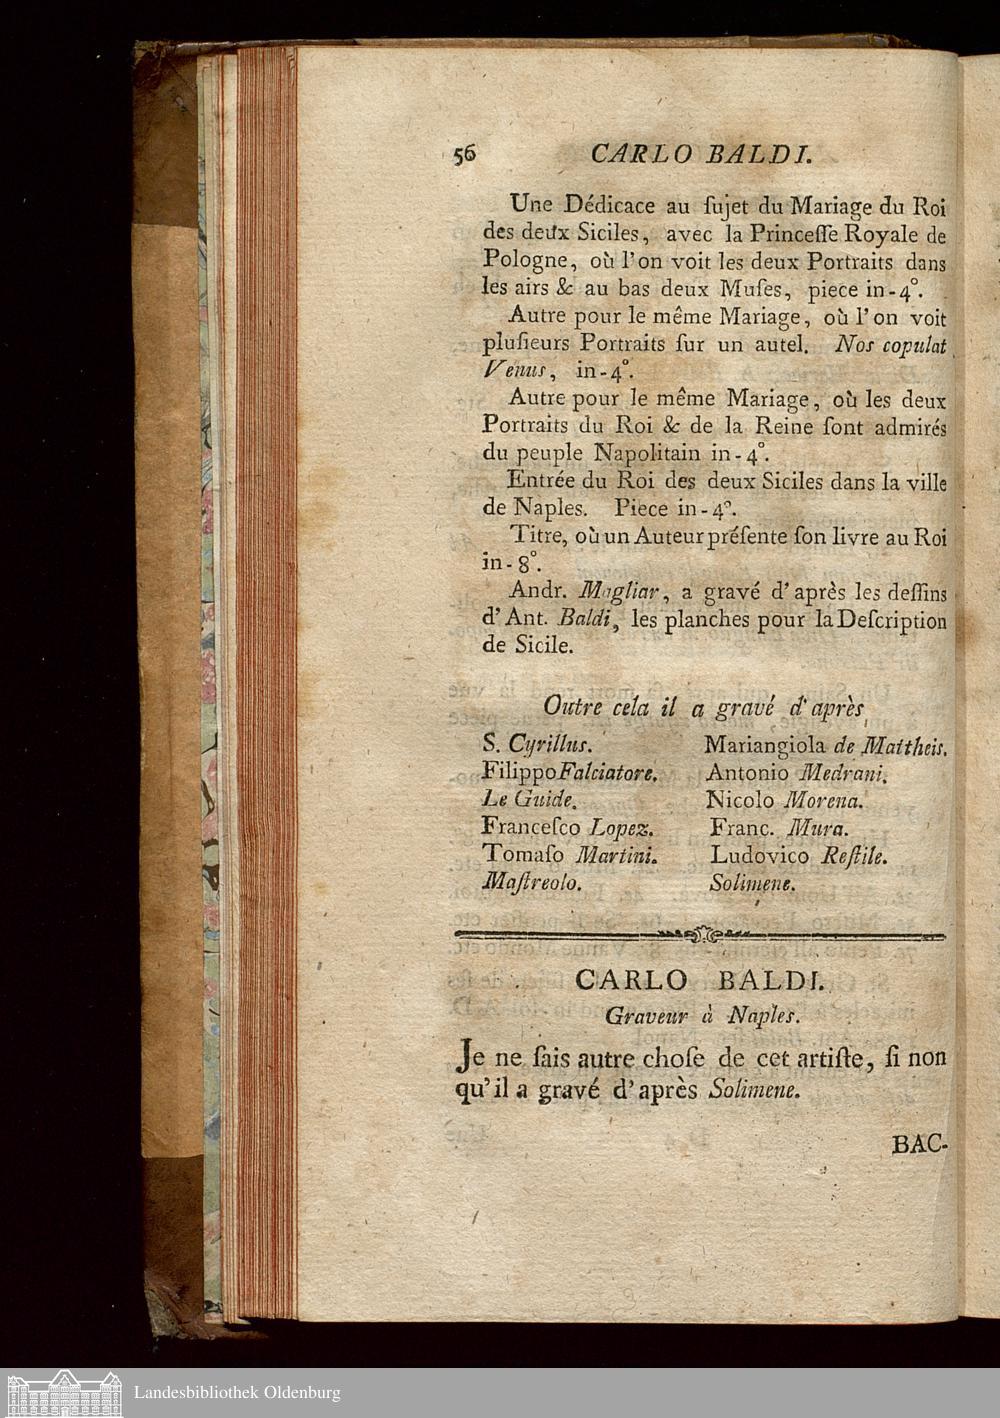 56 CARLO BALDI.
Une Dédicace au ſujet du Mariage du Roi
des deux Siciles, avec la Princeſſe Royale de
Pologne, où l'on voit les deux Portraits dans
les airs & au bas deux Muſes, piece in-4°.
Autre pour le même Mariage, où l'on voit
pluſieurs Portraits ſur un autel. Nos copulat
Venus, in-4°.
Autre pour le même Mariage, où les deux
Portraits du Roi & de la Reine ſont admirés
du peuple Napolitain in-4°.
Entrée du Roi des deux Siciles dans la ville
de Naples. Piece in-4°.
Titre, où un Auteur préſente ſon livre au Roi
in-8°.
Andr. Magliar, a gravé d'après les deſſins
d'Ant. Baldi, les planches pour la Deſcription
de Sicile.
Outre cela il a gravé d'après
S. Cyrillus. Mariangiola de Mattheis.
Filippo Falciatore. Antonio Medrani.
Le Guide. Nicolo Morena.
Franceſco Lopez. Franc. Mura.
Tomaſo Martini. Ludovico Reſtile.
Maſtreolo. Solimene.
CARLO BALDI.
Graveur à Naples.
Je ne ſais autre choſe de cet artiſte, ſi non
qu'il a gravé d'après Solimene.
BAC-
Landesbibliothek Oldenburg